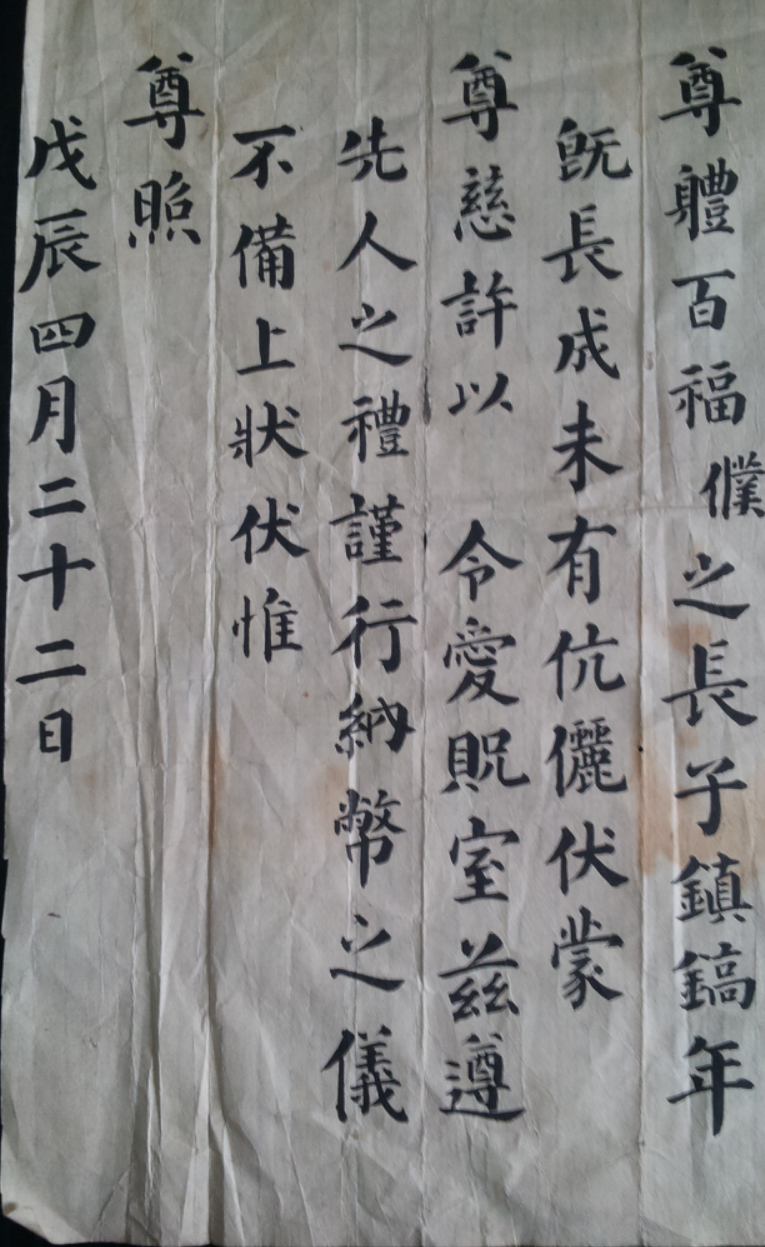 尊軆百福 僕之長子鎮鎬年
旣長成未有伉儷伏蒙
尊慈許以 令愛貺室茲遵
先人之禮謹行納幣之儀
不備上狀伏惟
尊照
戊辰四月二十二日